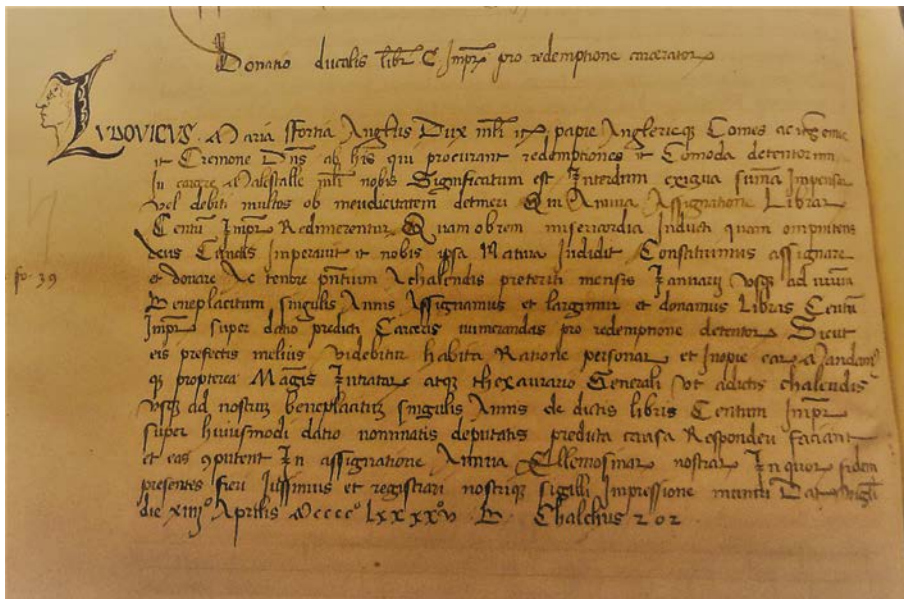 Donatio ducalis libr C Impr pro redemptione carcerator
LVDOVICVS Maria Sfortia Anglus Dux mli etc papie Anglerieq Comes ac
et Cremone Dns ab his qui procurant redemptiones et Comoda detentorum
In carcere Malestalle mli nobis Significatum est Interdum exigua suma Impensar
vel debiti multos ob mendicitatem detineri Qui Annua Assignatione Librar
Centu Impr Redimerentur Quam obrem misericordia Inducti quam omnipotens
deus Cunctis Imperavit et nobis ipsa Natura Indidit Constituimus assignare
fo. 39
et donare Ac tenore pntium Achallendis preteriti mensis Januarij Vsq ad
Beneplacitum singulis Annis Assignamus et largimur et donamus Libras Centu
Impr super datio predicti Carceris numerandas pro redemptione detentor Sicut
eis prefectis melius videbitur habita Ratione personar et Inopie ear Mandam
q propterea Magris Intrator atq thexaurario Generali Vt adictis chalendis
vsq ad nostru beneplacitu singulis Annis de dictis libris Centum Impr
super huiusmodi datio nominatis deputatis predicta causa Responderi faciant
et eas 9putent In assignatione Annua Ellemosinar nostrar In quor fidem
presentes fieri Iussimus et registrari nostriq sigilli Impressione muniri Dat
die xiiij° Aprilis Mcccc° Lxxxx°v B Chalchus